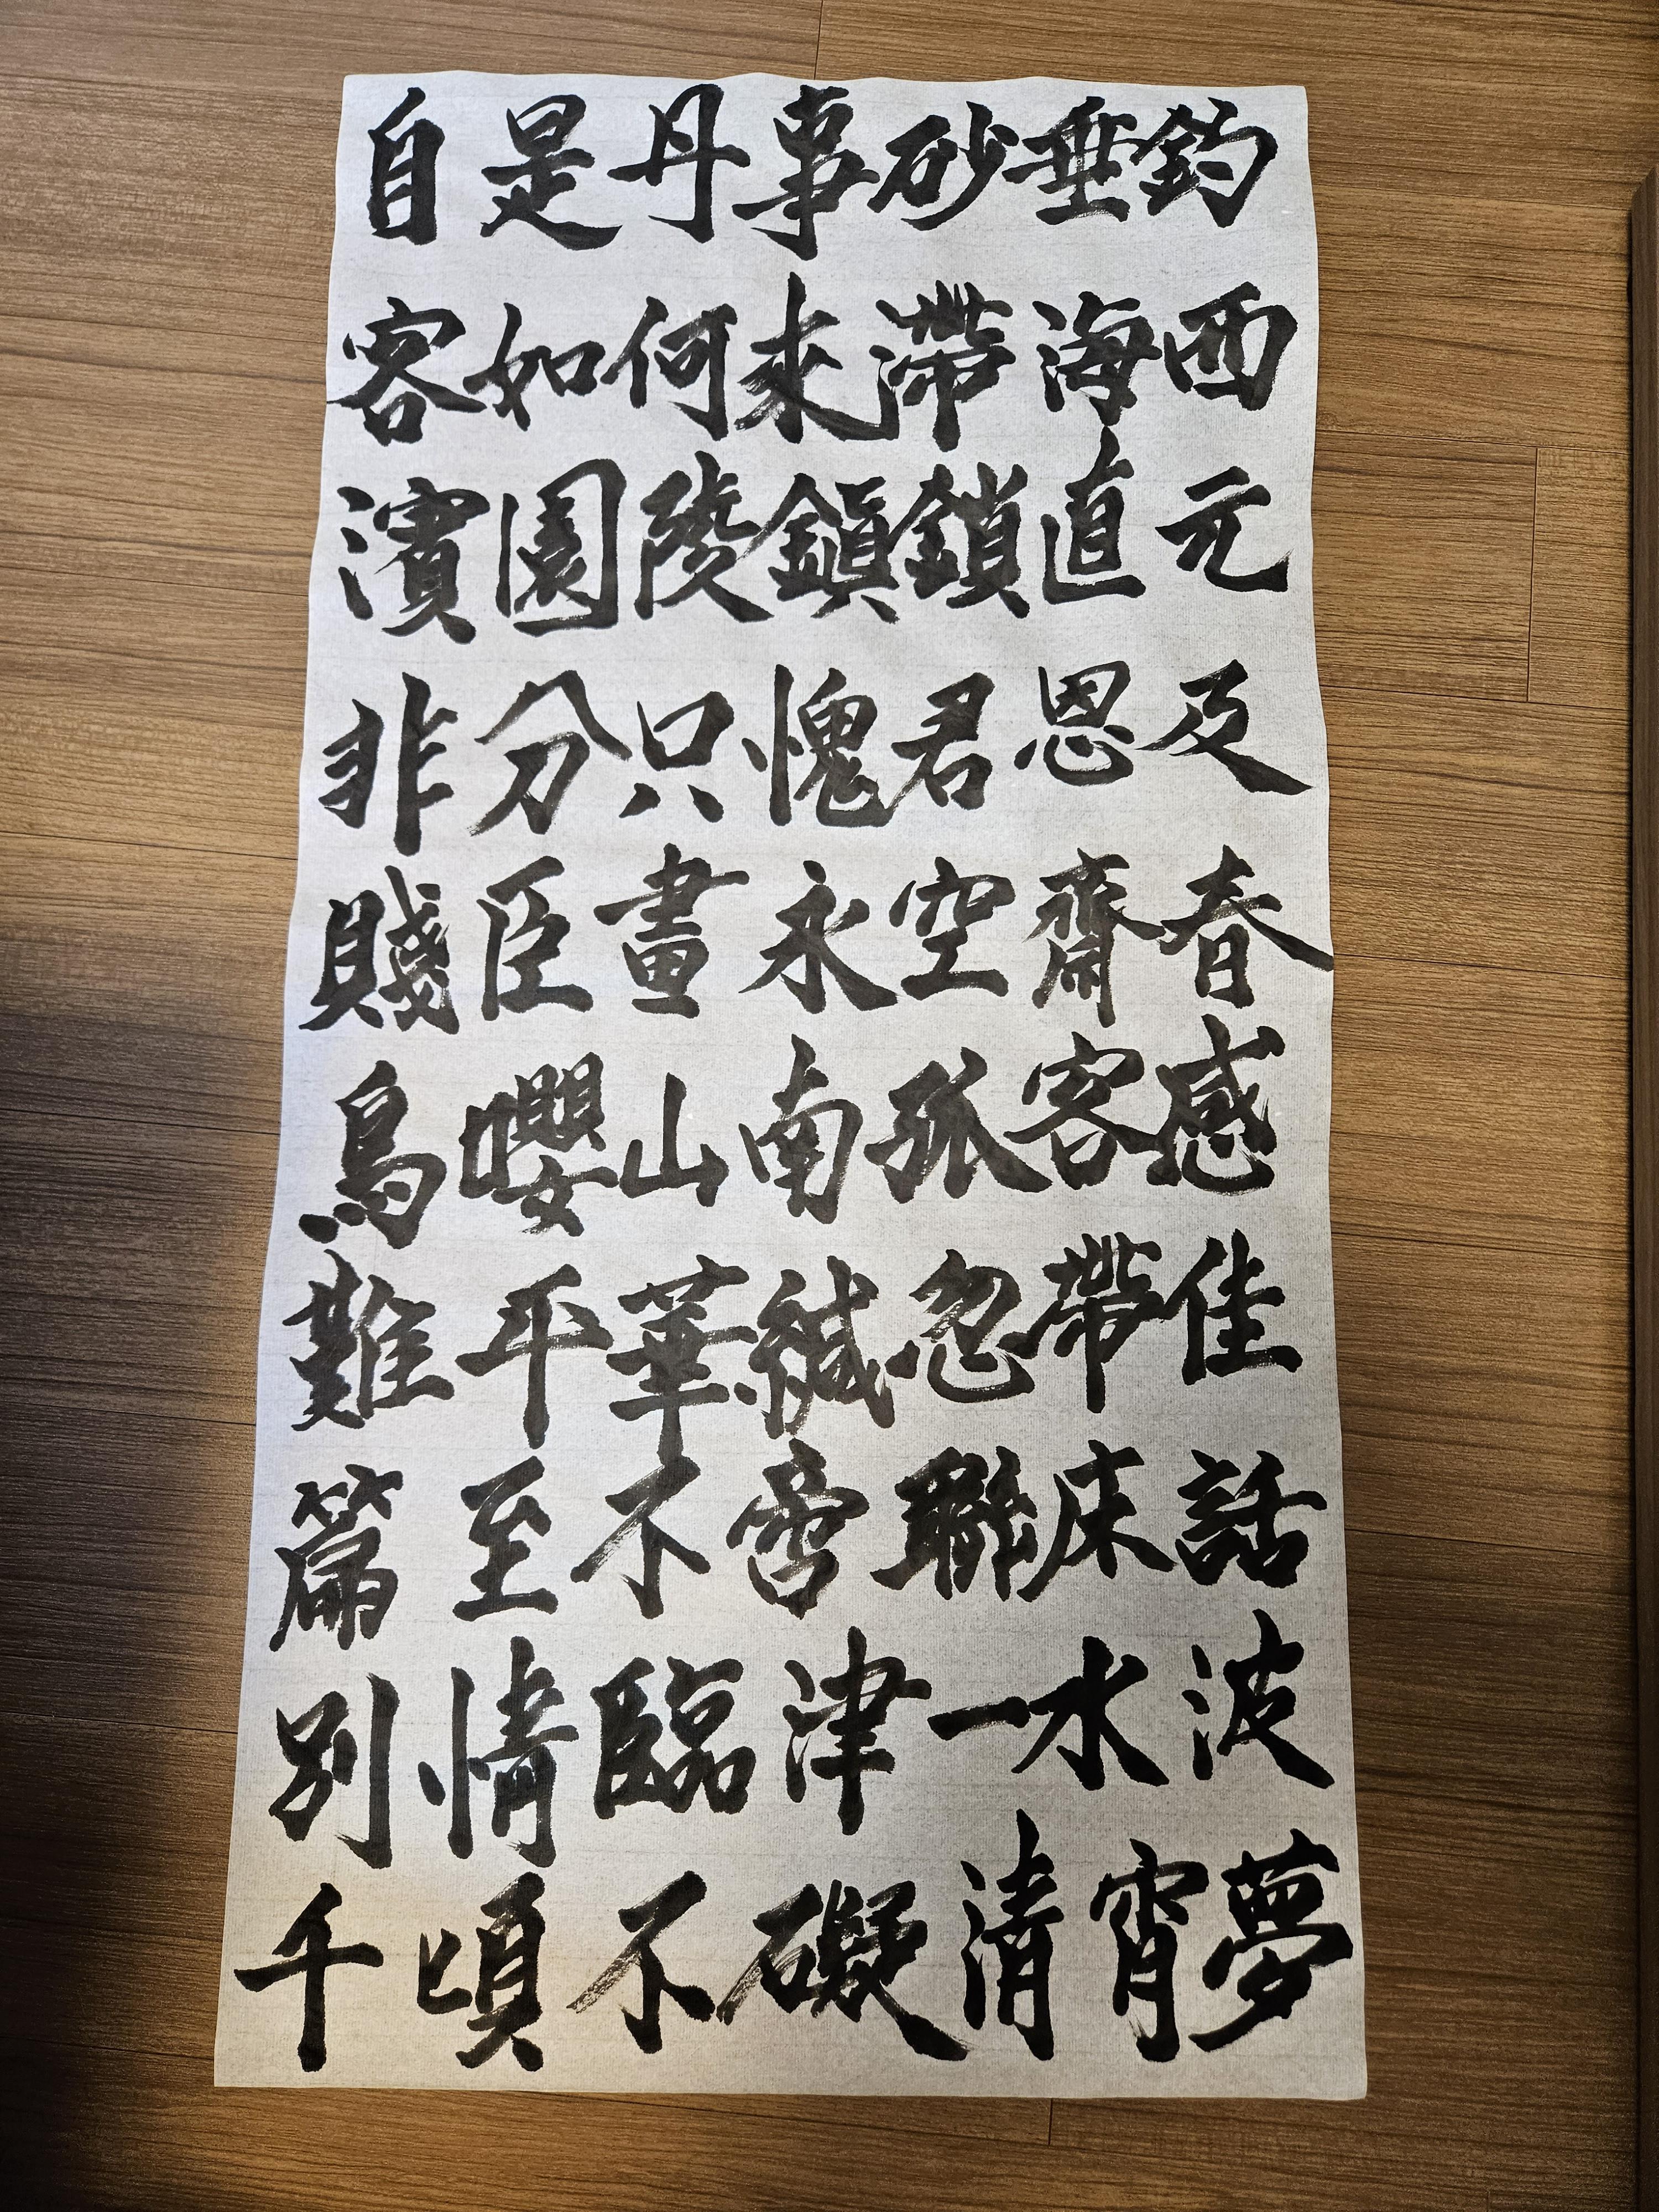 自是丹事砂垂釣
客如何來滯海西
濱園陵鎭鎖直元
非分只愧君恩及
賤臣晝永空齋春
鳥嚶山南孤客感
難平華緘忽帶佳
篇至不啻聯床話
別情臨津一水波
千頃不礙清宵夢